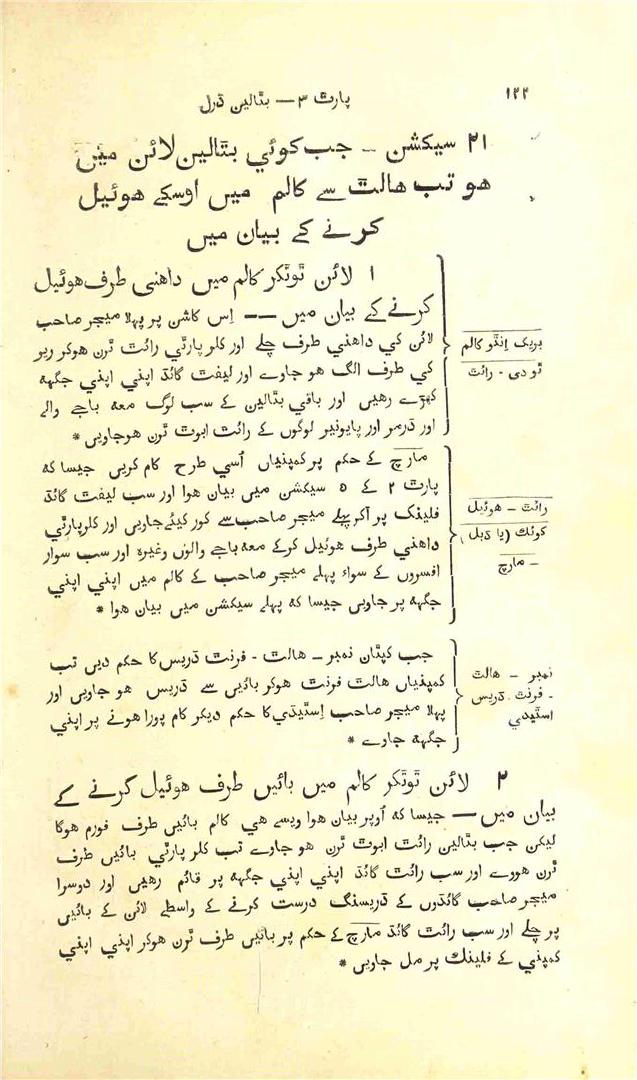 ۱۲۲
پارٹ ۳ — بٹالین ڈرل
۲۱ سیکشن — جب کوئي بٹالین لائن میں
هو تب هالٹ سے کالم میں اوسکے هوئیل
کرنے کے بیان میں
۱ لائن ٹوٹکر کالم میں داهنی طرف هوئیل
کرنے کے بیان میں —— اِس کاشن پر پہلا میجر صاحب
لائن کی داهنی طرف چلے اور کلر پارٹي رائٹ ٹرن هوکر ریر
کي طرف الگ هو جاوے اور لیفٹ گائڈ اپنی اپنی جگهہ
کھڑے رهیں اور باقي بٹالین کے سب لوگ معہ باجے والے
اور ڈرمر اور پایونیر لوگوں کے رائٹ ابوٹ ٹرن هوجاویں *
بریک اِنٹو کالم
ٹو دی - رائٹ
مارچ کے حکم پر کمپنیاں اُسي طرح کام کریں جیسا کہ
پارٹ ۲ کے ۵ سیکشن میں بیان هوا اور سب لیفٹ گائڈ
فلینک پر آکر پہلے میجر صاحب سے کور کیئے جاویں اور کلر پارٹي
داهنی طرف هوئیل کرکے معہ باجے والوں وغیرہ اور سب سوار
افسروں کے سواء پہلے میجر صاحب کے کالم میں اپنی اپنی
جگهہ پر جاویں جیسا کہ پہلے سیکشن میں بیان هوا *
رائٹ - هوئیل
کوئک (یا ڈبل)
- مارچ
جب کپتان نمبر — هالٹ - فرنٹ ڈریس کا حکم دیں تب
کمپنیاں هالٹ فرنٹ هوکر بائیں سے ڈریس هو جاویں اور
پہلا میجر صاحب اِسٹیڈي کا حکم دیکر کام پورا هونے پر اپنی
جگهہ جاوے *
نمبر — هالٹ
- فرنٹ ڈریس
اسٹیڈي
۲ لائن ٹوٹکر کالم میں بائیں طرف هوئیل کرنے کے
بیان میں — جیسا کہ اُوپر بیان هوا ویسے هي کالم بائیں طرف فورم هوگا
لیکن جب بٹالین رائٹ ابوٹ ٹرن هو جاوے تب کلر پارٹي بائیں طرف
ٹرن هووے اور سب رائٹ گائڈ اپني اپني جگهہ پر قائم رهیں اور دوسرا
میجر صاحب گائڈوں کے ڈریسنگ درست کرنے کے واسطے لائن کے بائیں
پر چلے اور سب رائٹ گائڈ مارچ کے حکم پر بائیں طرف ٹرن هوکر اپنی اپنی
کمپنی کے فلینک پر مل جاویں *